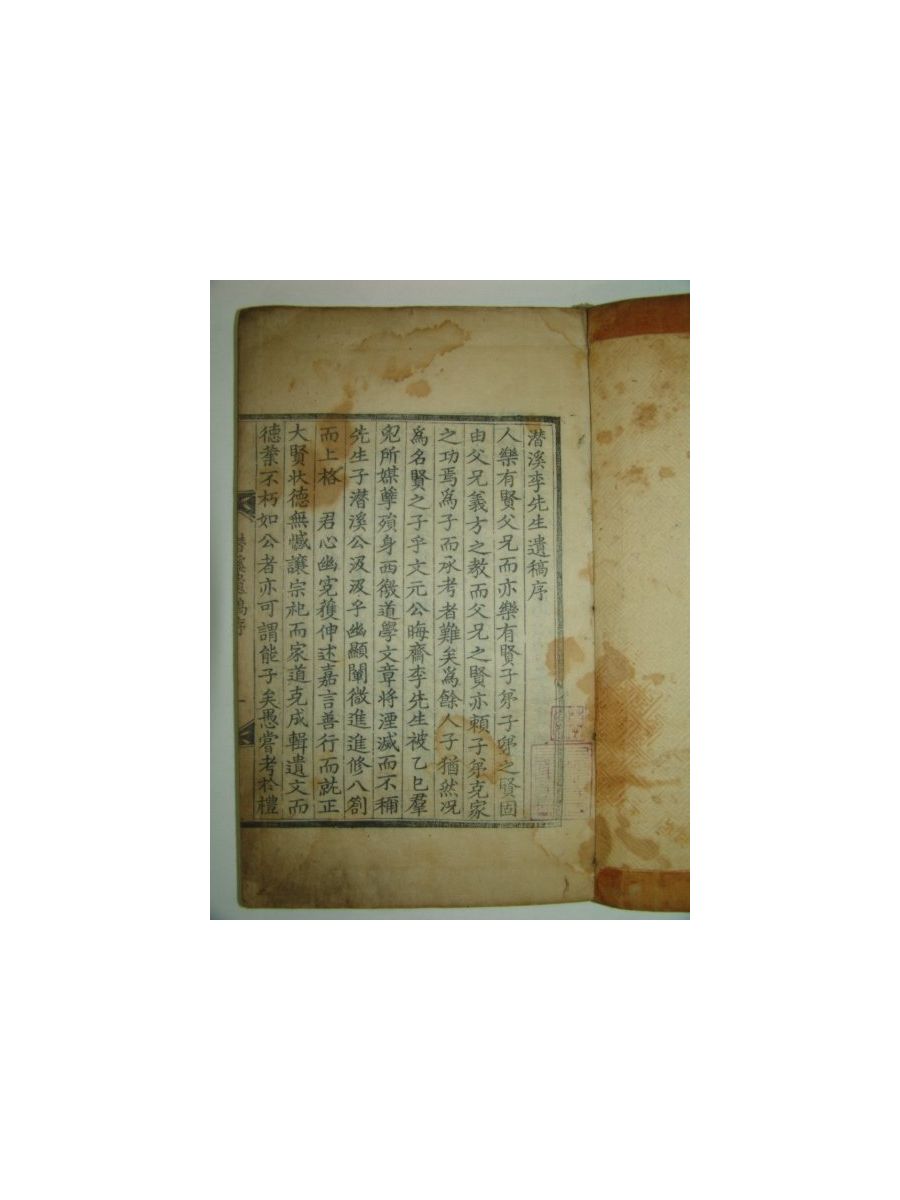 潛溪李先生遺稿序
人樂有賢父兄而亦樂有賢子弟子弟之賢固
由父兄義方之教而父兄之賢亦賴子弟克家
之功焉爲子而承考者難矣爲餘人子猶然况
爲名賢之子乎文元公晦齋李先生被乙巳羣
兇所媒孼殞身西徼道學文章将湮滅而不稱
先生子潛溪公汲汲乎幽顯闡微進進修八箚
而上格 君心幽寃獲伸述嘉言善行而就正
大賢状德無憾讓宗祀而家道克成輯遺文而
德業不朽如公者亦可謂能子矣愚嘗考於禮
潛溪遺稿序 一